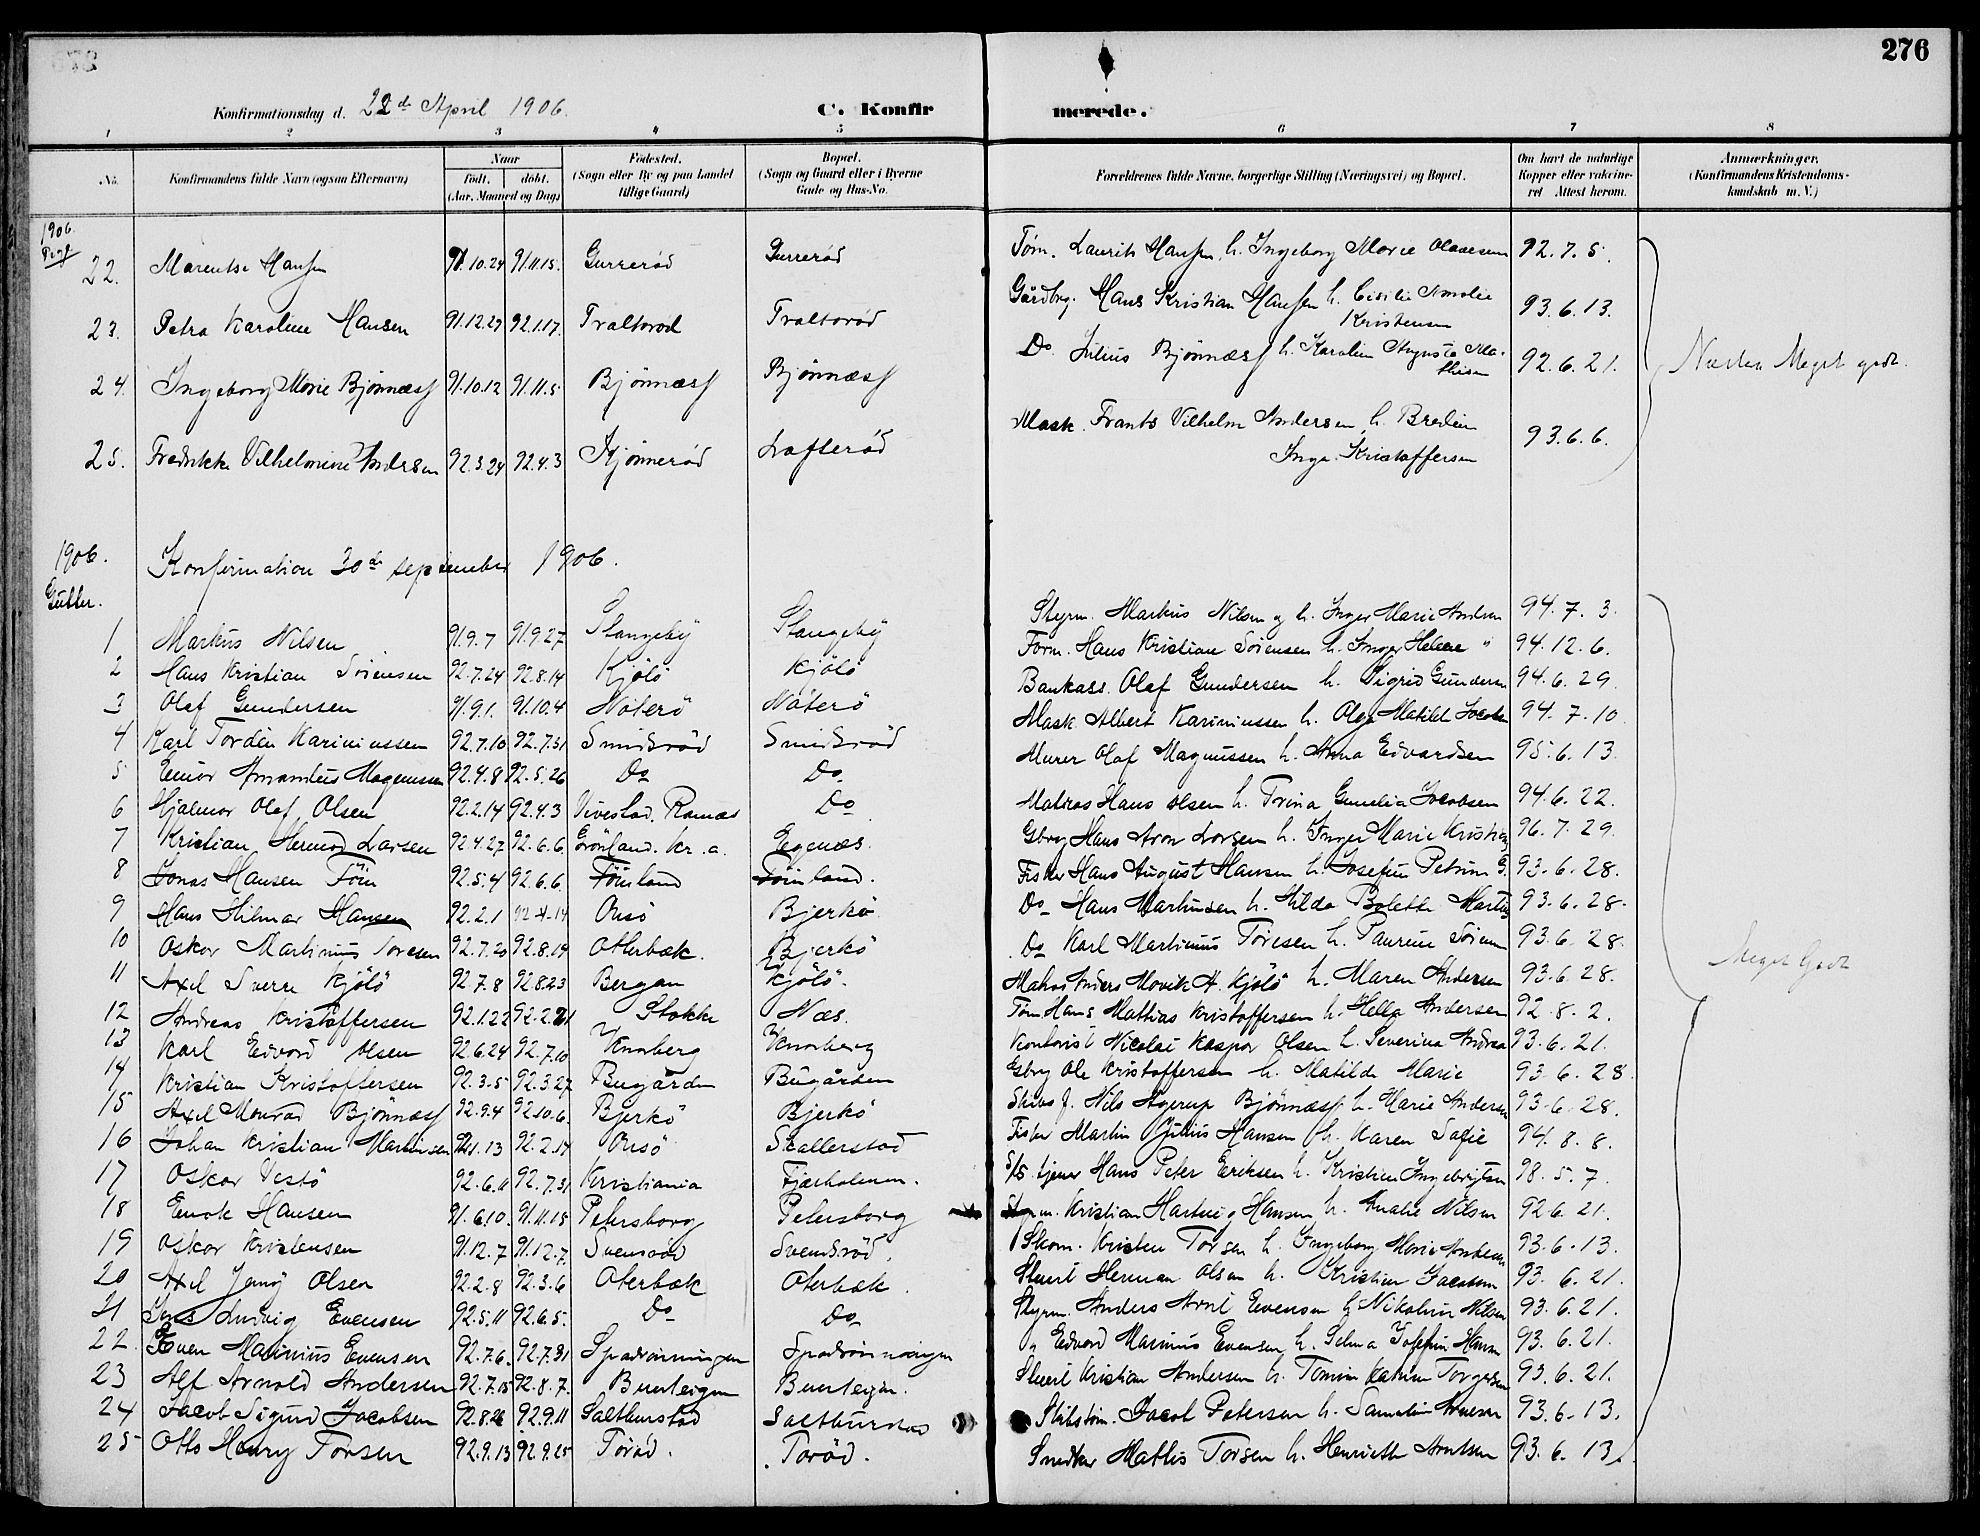 276
Konfirmationsdag d. 22de April 1906.
C. Konfirmerede.
1 2 3 4 5 6 7 8
No. Konfirmandens fulde Navn (ogsaa Efternavn) Naar født. døbt. (Aar, Maaned og Dag) Fødested. (Sogn eller By og paa Landet tillige Gaard) Bopæl. (Sogn og Gaard eller i Byerne Gade og Hus-No. Forældrenes fulde Navne, borgerlige Stilling (Næringsvei) og Bopæl. Om havt de naturlige Kopper eller vaccineret Attest herom. Anmærkninger, (Konfirmandens Kristendomskundskab m. V.)
1906.
22. Marentse Hansen 91.10.24 91.11.15. Gurrerød Gurrerød Tøm. Laurits Hansen, h. Ingeborg Marie Olausen 92.7.5.
23. Petra Karoline Hansen 91.12.27 92.1.17. Traltorød Traltorød Gårdbrg. Hans Kristian Hansen h. Cicilie Amalie Kristensen 93.6.13.
24. Ingeborg Marie Bjönnæss 91.10.12 91.11.5 Bjönnæss Bjönnæss Do. Julius Bjönnæss h. Karoline Augusta Mathisen 92.6.21.
Næsten Meget godt.
25. Fredrikke Vilhelmine Andersen 92.3.24 92.4.3 Kjönnerød Lofterød Mask. Frants Vilhelm Andersen h. Inga Kristoffersen 93.6.6.
1906. Konfirmation 30de september 1906.
Gutter.
1 Markus Nilsen 91.9.7 91.9.27 Stangeby Stangeby Styrm. Markus Nilsen og h. Inger Marie Andersen 94.7.3.
2 Hans Kristian Sörensen 92.7.24 92.8.14 Kjölö Kjölö Hans Kristian Sörensen h. Inger Helene " 94.12.6.
3 Olaf Gundersen 91.9.1. 91.10.4 Nöterö Nöterö Bankass. Olaf Gundersen h. Sigrid Gundersen 94.6.29.
4 Karl Tordén Kariniussen 92.7.10 92.7.31 Smidsrød Smidsrød Mask Albert Kariniussen h. Olga Matilde Jacobsen 94.7.10
5 Einar Amandus Magnussen 92.4.8 92.5.26 Do Do. Murer Olaf Magnussen h. Anna Edvardsen 95.6.13.
6 Hjalmar Olaf Olsen 92.2.14 92.4.3 Vivestad. Ramnæs Do Matros Hans Olsen h. Trina Gunelia Jacobsen 94.6.22.
7 Kristian Hermod Larsen 92.4.27 92.6.6. Grönland. Kr.a. Egenæs. Gbrg Hans Aron Larsen h. Inger Marie Kristians 96.7.29.
8 Jonas Hansen Föin 92.5.4 92.6.6. Föinland Föinland. Fisker Hans August Hansen h. Josefine Petrine G. 93.6.28.
9 Hans Hilmar Hansen 92.2.1 92.4.14 Orsö Bjerkö Do Hans Martinsen h. Hilda Bolette 93.6.28.
10 Oskar Martinius Toresen 92.7.20 92.8.14 Oterbæk. Bjerkö Do Karl Martinius Toresen h. Laurine 93.6.28.
11 Axel Sverre Kjölö 92.7.8 92.8.23 Bergan Kjölö. Matros Anders A. Kjölö h. Maren Andersen 93.6.28.
12 Andreas Kristoffersen 92.1.22 92.2.21 Stokke Næs. Töm Hans Mathias Kristoffersen h. Helga Andersen 92.8.2.
Meget Godt
13 Karl Edvard Olsen 92.6.24 92.7.10 Knarberg Knarberg Kontorist Nicolai Kaspar Olsen h. Severina Andrea 93.6.21.
14 Kristian Kristoffersen 92.3.5 92.3.27 Bugården Bugården Gbrg Ole Kristoffersen h. Matilde Marie 93.6.28.
15 Axel Monrad Bjönnæss 92.9.4 92.10.6. Bjerkö Bjerkö Skibsf. Nils Agerup Bjönnæss h. Marie Andersen 93.6.28.
16 Johan Kristian Martinsen 92.1.13 92.2.14 Orsö Skallerstad Fisker Martin Julius Hansen h. Karen Sofie 94.8.8.
17 Oskar Vestö 92.6.11 92.7.31 Kristiania Fjærholmen. S/S. tjener Hans Peter Eriksen h. Kristine Ingebrigtsen 98.5.7.
18 Enok Hansen 91.6.10. 91.11.15 Petersborg Petersborg Styrm. Kristian Hansen h. Amalie Nilsen 92.6.21.
19 Oskar Kristensen 91.12.7 91.12.7. Svensrød Svendsrød. Skom. Kristen Torsen h. Ingeborg Marie Andersen 93.6.13.
20 Axel Jenöy Olsen 92.2.8 92.3.6 Oterbæk Oterbæk. Stuert Herman Olsen h. Kristine Jacobsen 93.6.21.
21 Jens Ludvig Evensen 92.5.11 92.6.5. Do Do. Styrm. Anders Evensen h. Nikoline Nilsen 93.6.21.
22. Even Marinius Evensen 92.7.6. 92.7.31 Spadrönningen Spadrönningen " Edvard Marinius Evensen h. Selma Josefine Hansen 93.6.21.
23 Alf Arnold Andersen 92.7.15 92.8.7. Buerteigen Buerteigen. Stuert Kristian Andersen h. Tomine Katrine Torgersen 93.6.21.
24 Jacob Sigurd Jacobsen 92.8.26 92.9.11 Salthurstad Salthurstad Skibstøm. Jacob Petersen h. 93.6.13.
25 Otto Henry Torsen 92.9.13 92.9.25 Torød. Torød. Snedker Mathis Torsen h. Henriette Arntsen 93.6.13.